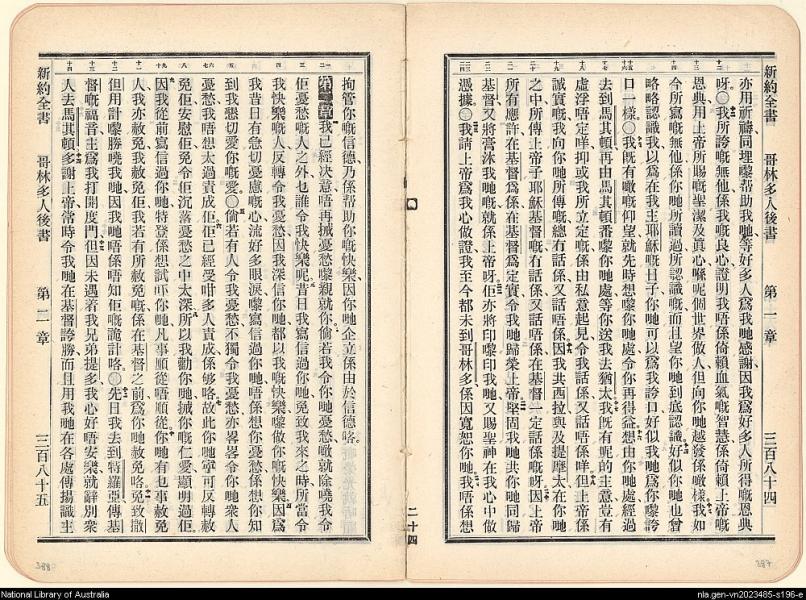 新約全書 哥林多人後書 第一章 三百八十四
亦用祈禱同埋嚟幫助我哋等好多人爲我哋感謝因我爲好多人所得嘅恩典
呀○我所誇嘅無他係我嘅良心證明我唔係倚賴血氣嘅智慧係倚賴上帝嘅
恩典用上帝所賜嘅聖潔及眞心喺呢個世界做人但向你哋越發係噉樣我如
今所寫嘅無他係你哋所讀過所認識嘅而且望你哋到底認識好似你哋也曾
略略認識我以爲在我主耶穌嘅日子你哋可以爲我誇口好似我哋爲你嚟誇
口一樣○我既有噉嘅仰望就先時想嚟你哋處令你再得益想由你哋處經過
去到馬其頓再由馬其頓番嚟你哋處等你送我去猶太我既有呢的主意豈有
虛浮唔定咩抑或我所立定嘅係由私意起見令我話係又話唔係咩但上帝係
誠實嘅我哋向你哋所傳嘅總冇話係又話唔係因我共西拉與及提摩太在你哋
之中所傳上帝子耶穌基督嘅冇話係又話唔係在基督一定話係嘅呀因上帝
所有應許在基督爲係在基督爲定實令我哋歸榮上帝堅固我哋共你哋同歸
基督又將膏沐我哋嘅就係上帝呀佢亦將印嚟印我哋又賜聖神在我心中做
憑據○我請上帝爲我心做證我至今都未到哥林多係因寬恕你哋我唔係想
二十四
拘管你嘅信德乃係帮助你嘅快樂因你哋企立係由於信德咯
第二章我已經决意唔再掝憂愁嚟親就你倘若我令你哋憂愁噉就除曉我令
佢憂愁嘅人之外乜誰令我快樂呢昔日我寫信過你哋免致我來之時所當令
我快樂嘅人反轉令我憂愁因我深信你哋都以我嘅快樂嚟做你哋快樂因爲
我昔日有急切憂慮嘅心流好多眼淚嚟寫信過你哋唔係想你憂愁係想你知
到我懇切愛你嘅愛○倘若有人令我憂愁不獨令我憂愁亦畧畧令你哋衆人
憂愁我唔想太過責成佢佢已經受咁多人責成係够咯故此你哋寧可反轉赦
免佢安慰佢免令佢沉落憂愁之中太深所以我勸你哋掝你嘅仁愛顯明過佢
因我從前寫信過你哋特登係想試吓你哋凡事順從唔順從你哋有乜事赦免
人我亦赦免我赦免佢我若有所赦免嘅係在基督之前爲你哋赦免咯免致撒
但用計嚟勝曉我哋因我哋唔係唔知佢嘅詭計咯○先日我去到特羅亞傳基
督嘅福音主爲我打開度門但因未遇着我兄弟提多我心好唔安樂就辭別衆
人去馬其頓多謝上帝常時令我哋在基督誇勝而且用我哋在各處傳揚識主
新約全書 哥林多人後書 第二章 三百八十五
388
387
National Library of Australia
nla.gen-vn2023485-s196-e